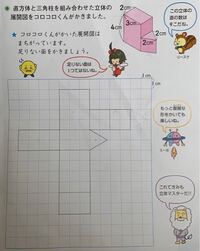 直方体と三角柱を組み合わせた立体の
展開図をコロコロくんがかきました。
★コロコロくんがかいた展開図は
まちがっています。
足りない面をかきましょう。
2cm
3cm
4cm
2cm
2cm
この立体の
面の数は
すごだね。
足りない面は
1つではないね。
1cm
1cm
もっと複雑な
形をかいても
楽しいね。
これできみも
立体マスターだ!!